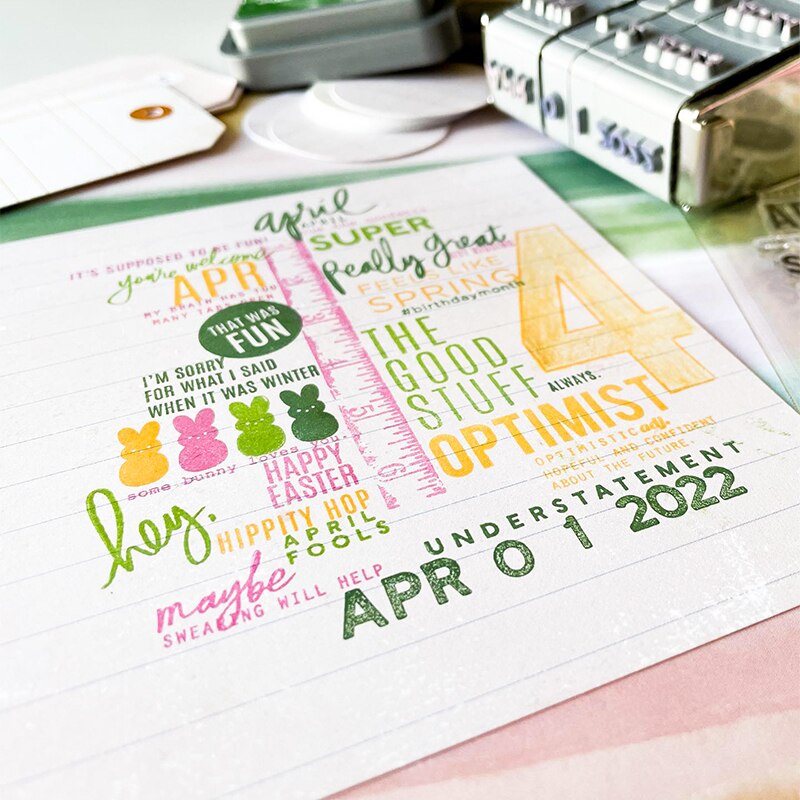 april
IT'S SUPPOSED TO BE FUN!
you're welcome
APR
MY BRAIN HAS TOO
MANY TABS OPEN
THAT WAS
FUN
I'M SORRY
FOR WHAT I SAID
WHEN IT WAS WINTER
some bunny loves you.
HAPPY
EASTER
hey,
HIPPITY HOP
APRIL
FOOLS
maybe
SWEARING WILL HELP
SUPER
Really great
FEELS LIKE
SPRING
#birthdaymonth
4
THE
GOOD
STUFF
ALWAYS.
OPTIMIST
OPTIMISTIC
HOPEFUL AND CONFIDENT
ABOUT THE FUTURE.
UNDERSTATEMENT
APR 0 1 2022